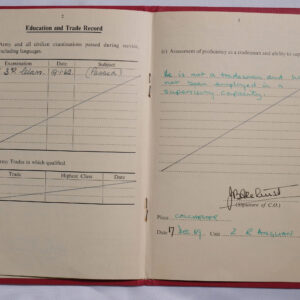 2
Education and Trade Record
Army and all civilian examinations passed during service,
including languages.
Examination Date Subject
3RD Class. (Passed)
Army Trades in which qualified.
Trade Highest Class Date
3
(c) Assessment of proficiency as a tradesman and ability to
He is not a tradesman and
not been employed in a
supervisory capacity.
(Signature of C.O.)
Place COLCHESTER
Date 17 Unit 2 R ANGLIAN